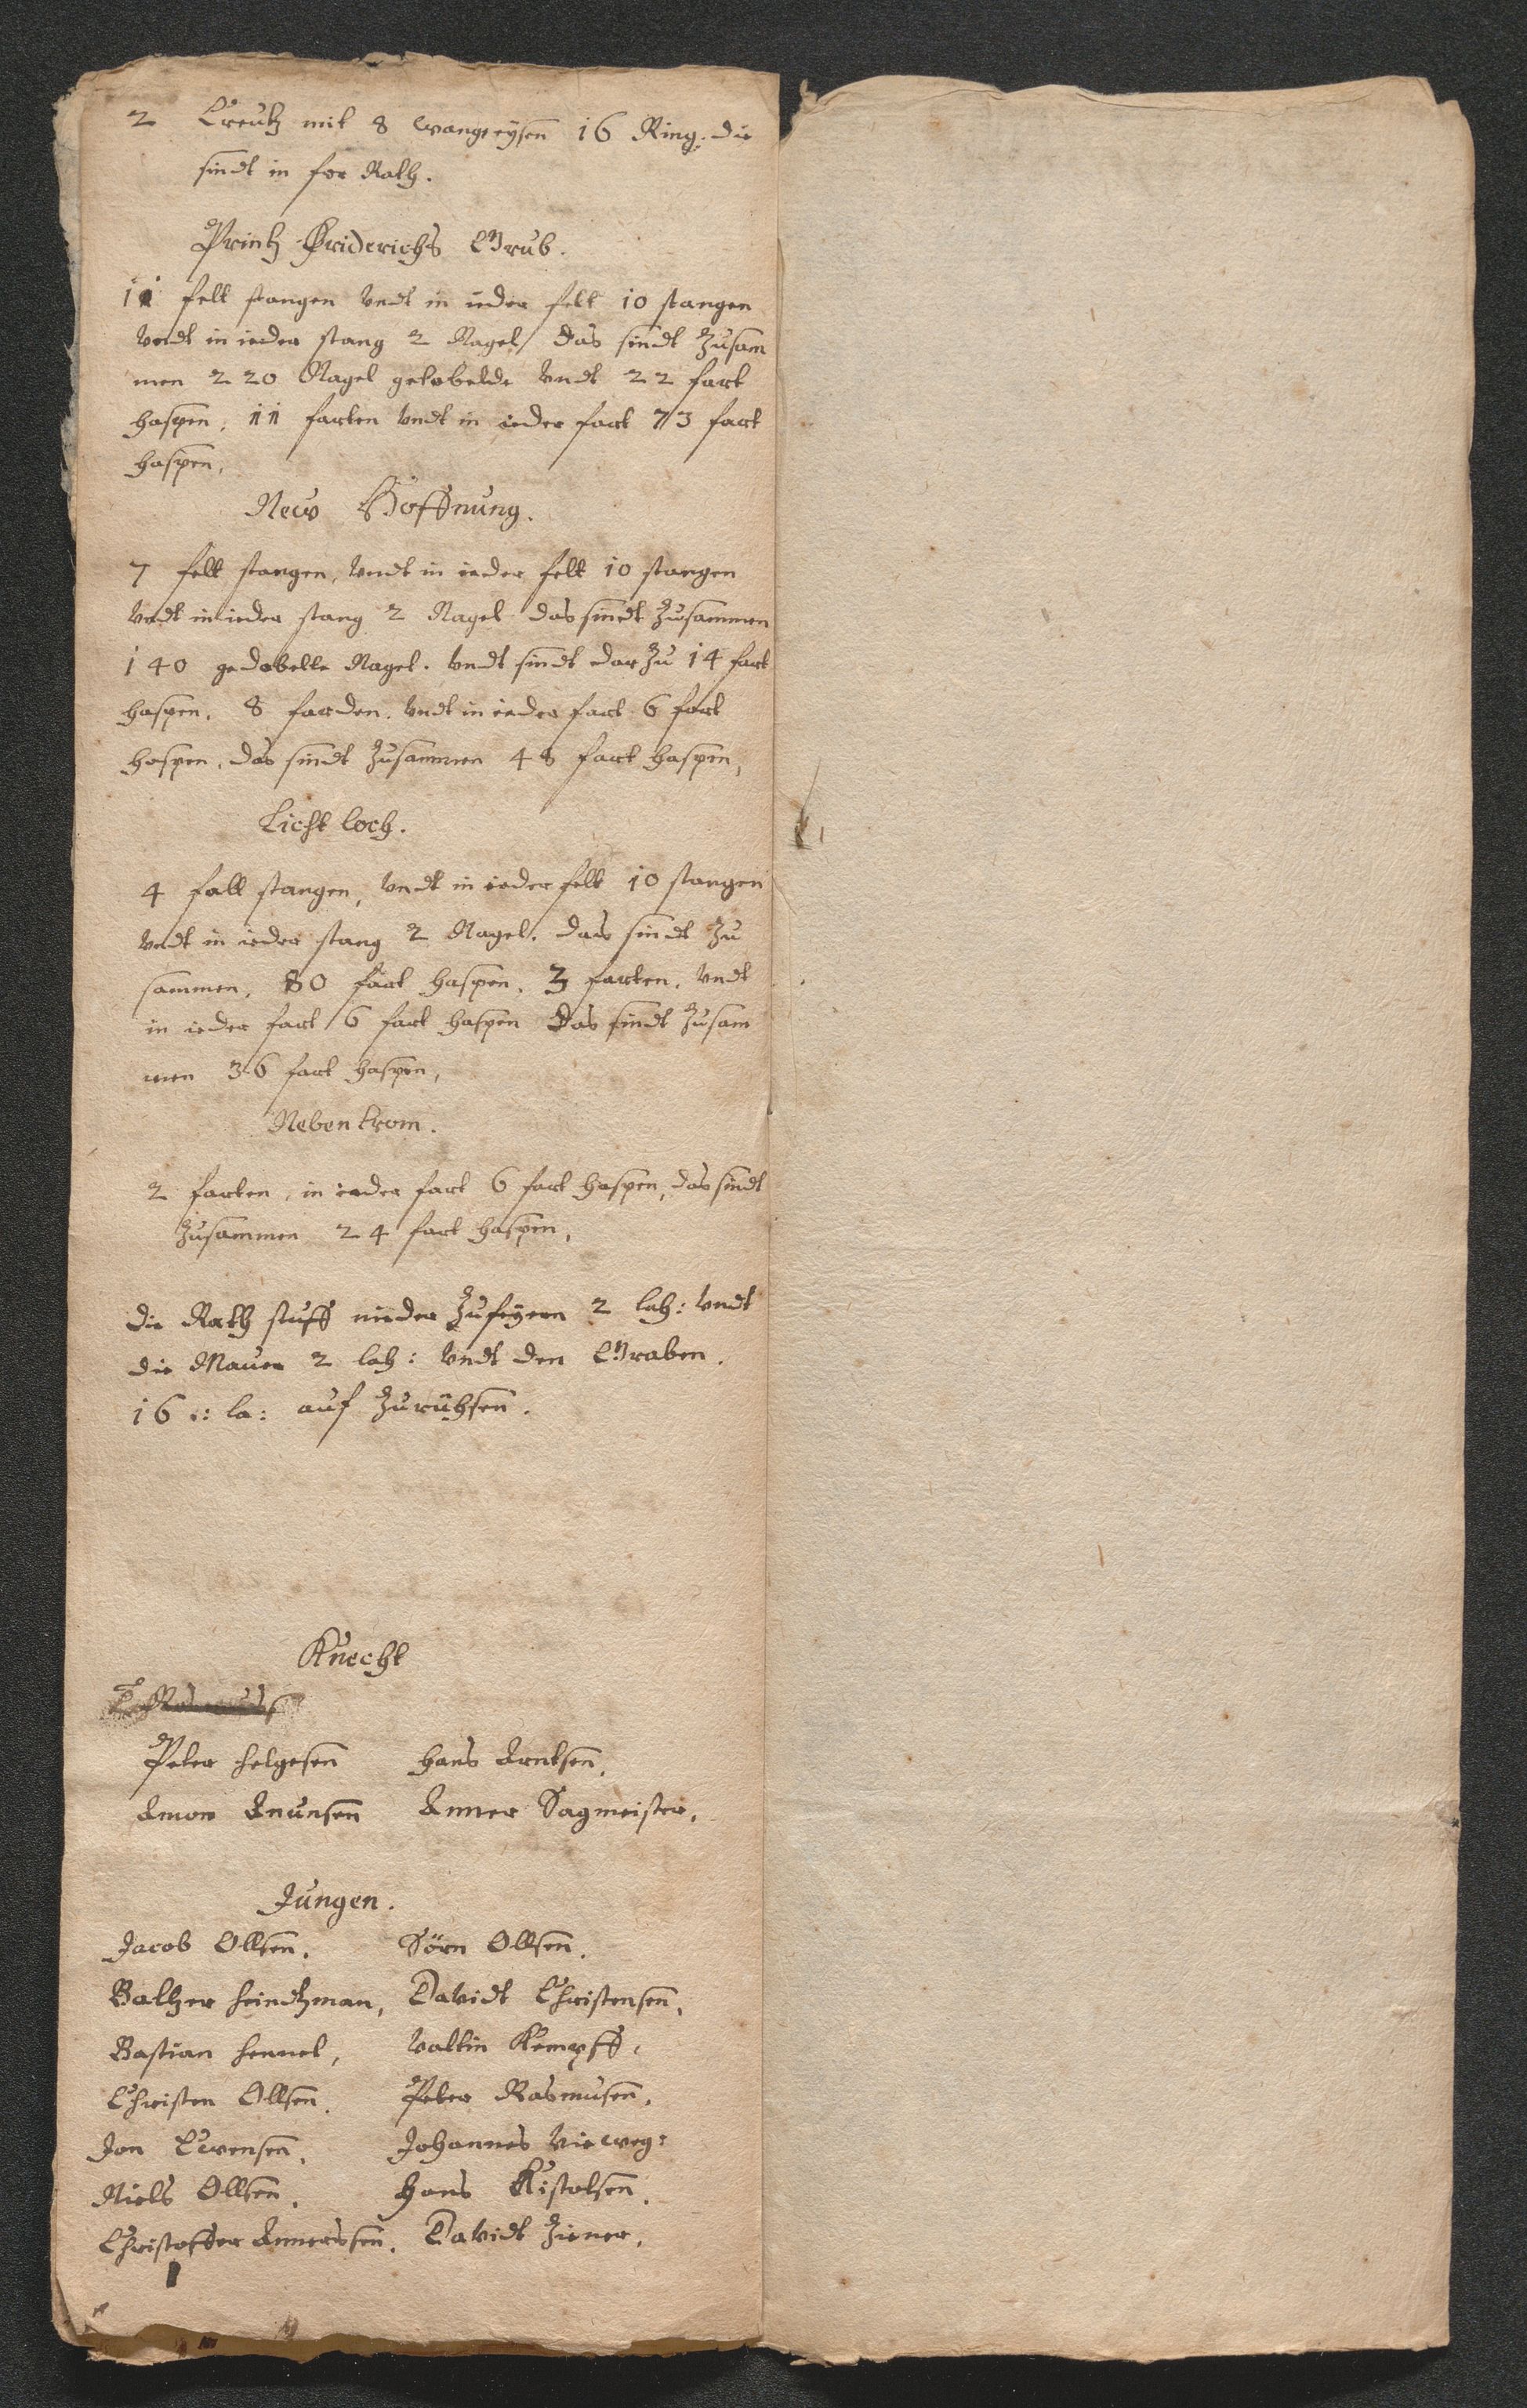 2 Creutz mit 8 wangeysen 16 Ring. die
sindt in for Rath.
Printz Friderichs Grub.
11 felt stangen vndt in ieder felt 10 stangen
vndt in ieder stang 2 Nagel, das sindt zusam
men 220 Nagel gedobelde vndt 22 fart
haspen, 11 farten vndt in ieder fart 73 fart
haspen,
New Hoffnung.
7 felt stangen, vndt in ieder felt 10 stangen
vndt in ieder stang 2 Nagel das sindt zusammen
140 gedobelte Nagel. vndt sindt dar zu 14 fart
haspen, 8 farden. vndt in ieder fart 6 fart
haspen, das sindt zusammen 48 fart haspen,
Licht loch.
4 fall stangen, vndt in ieder felt 10 stangen
vndt in ieder stang 2 Nagel. das sindt zu
sammen, 80 fart haspen, 3 farten, vndt
in ieder fart 6 fart haspen das sindt zusam
men 36 fart haspen,
Neben trom.
2 farten, in ieder fart 6 fart haspen, das sindt
zusammen 24 fart haspen,
die Rath stuff nieder 2 lah: vndt
die Mauer 2 lah: vndt den Graben.
16 la: auf
Knecht
Peter helgesen hans Arntsen,
Amon Knunsen Anner Sagmeister,
Jungen.
Jacob Ollsen, Sörn Ollsen,
Baltzer heindtzman, Davidt Christensen,
Bastian hennel, Valtin Kempff,
Christen Ollsen, Peter Rasmusen,
Jon Evensen, Johannes Vieweg:
Niels Ollsen, Hans Kistolsen,
Christoffer Annerssen, Davidt Ziener,